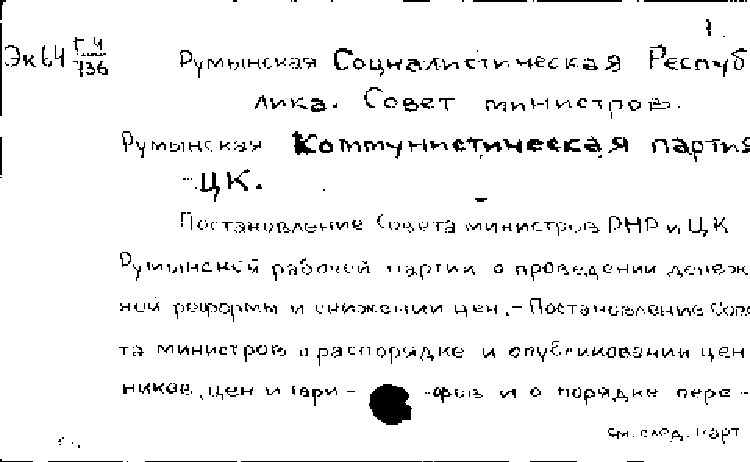 1.
Эк64 Г.4/736
Румынская Социалистическая Респуб
лика. Совет министров.
Румынская Коммунистическая партия
- ЦК.
Постановление Совета министров РНР и ЦК
Румынской рабочей партии о проведении денеж
ной реформы и снижении цен. - Постановление Сове
та министров о распорядке и опубликовании цен
ников, цен и тари- -фов и о порядке пере-
см. след. карт